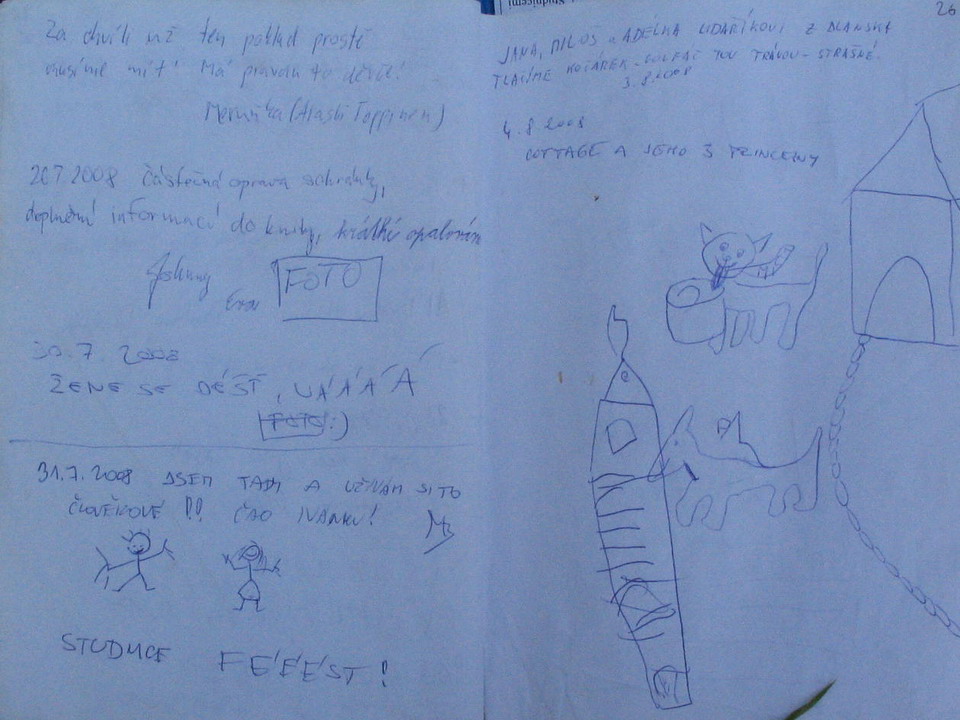 Za chvíli už ten poklad prostě
musíme mít! Má pravdu to děvče!
Meruňka (Arashi Toppinen)
20.7.2008 částečná oprava schránky,
doplnění informací do knihy, krátké opalování
Johnny
Eva FOTO
30.7.2008
ŽENE SE DÉŠŤ, UÁÁÁÁ
FOTO :)
31.7.2008 JSEM TADY A UŽÍVÁM SI TO
ČLOVĚKOVÉ !! ČAO IVÁNKU!
STUDNICE FÉÉÉST!
26
JANA, MILOŠ a ADÉLKA UDAŘÍKOVI Z BLANSKA
TLAČÍME KOČÁREK TOU TRÁVOU - STRAŠNÉ!
3.8.2008
4.8.2008
COTTAGE A JEHO 3 PRINCEZNY